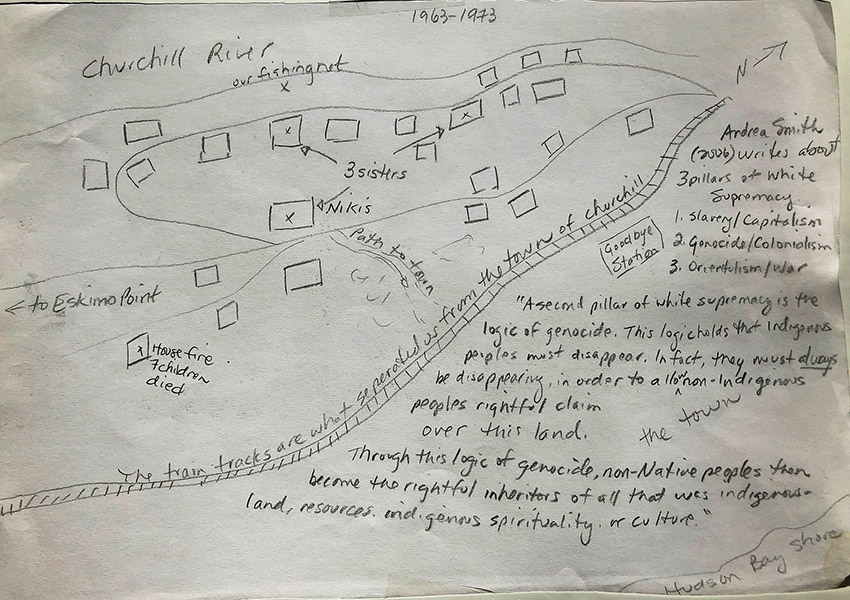 1963-1973
Churchill River
our fishing net
x
N
x
x
3 sisters
Nikis
x
Path to town
← to Eskimo Point
x
House fire
7 children
died
The train tracks are what seperated us from the town of churchill
Goodbye
Station
Andrea Smith
(2006) writes about
3 pillars of white
Supremacy
1. Slavery/Capitalism
2. Genocide/Colonialism
3. Orientalism/War
"A second pillar of white supremacy is the
logic of genocide. This logic holds that Indigenous
peoples must disappear. In fact, they must always
be disappearing, in order to allow non-Indigenous
peoples rightful claim
over this land.
the town
Through this logic of genocide, non-Native peoples then
become the rightful inheritors of all that was indigenous-
land, resources. indigenous spirituality. or culture."
Hudson Bay shore